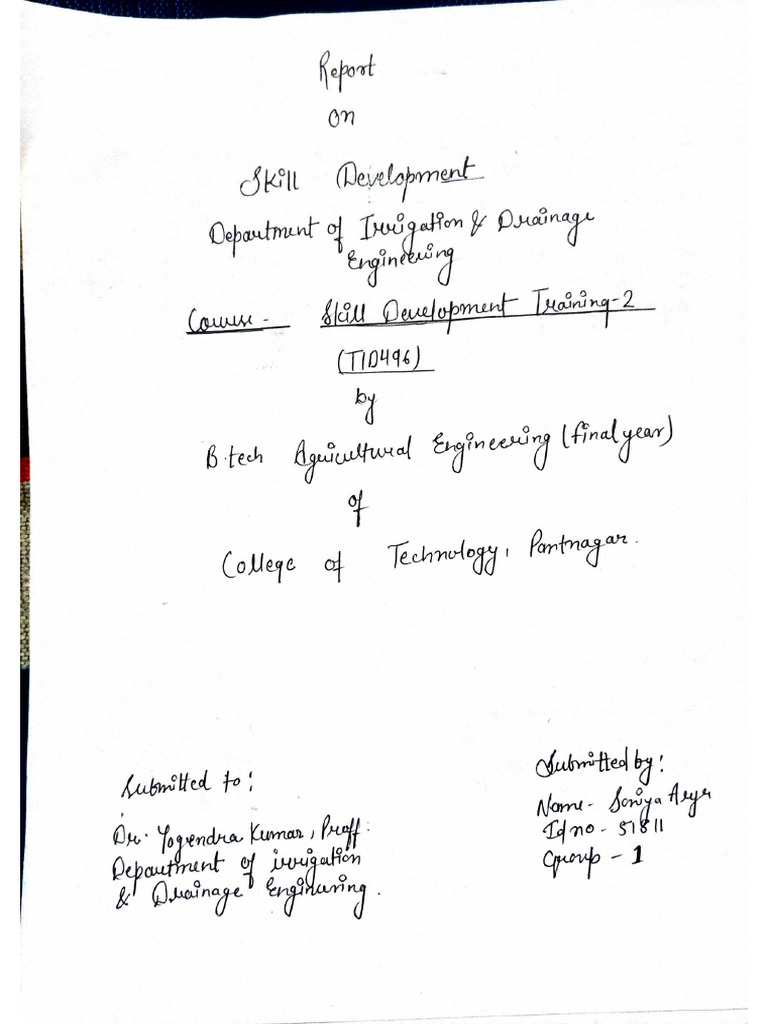 Report
on
Skill Development
Department of Irrigation & Drainage
Engineering
Course - Skill Development Training-2
(TID496)
by
B.tech Agricultural Engineering (final year)
of
College of Technology, Pantnagar.
Submitted to:
Dr. Yogendra Kumar, Proff.
Department of irrigation
& Drainage Engineering.
Submitted by:
Name - Soniya Arya
Id no - 51811
Group - 1